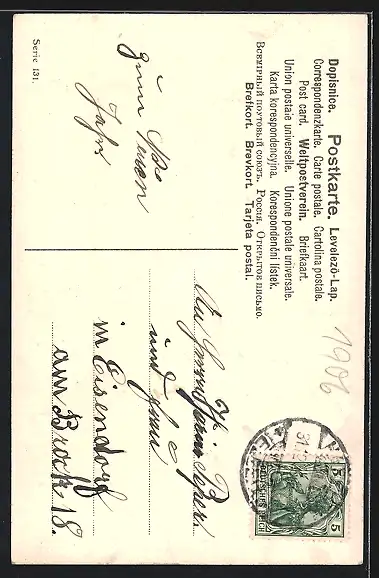 Dopisnice. Postkarte. Levelező-Lap.
Correspondenzkarte. Carte postale. Cartolina postale.
Post card. Weltpostverein. Briefkaart.
Union postale universelle. Unione postale universale.
Karta korespondencyjna. Korespondenční lístek.
Всемірный почтовый союзъ. Россія. Открытое письмо.
Brefkort. Brevkort. Tarjeta postal.
1906
5 5
DEUTSCHES REICH
31.
zum
Jahr
und Frau
in Eisendorf
am Brook 18.
Serie 131.